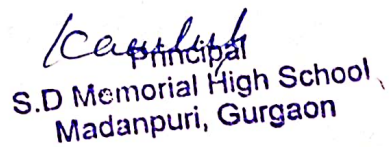 Principal
S.D Memorial High School
Madanpuri, Gurgaon